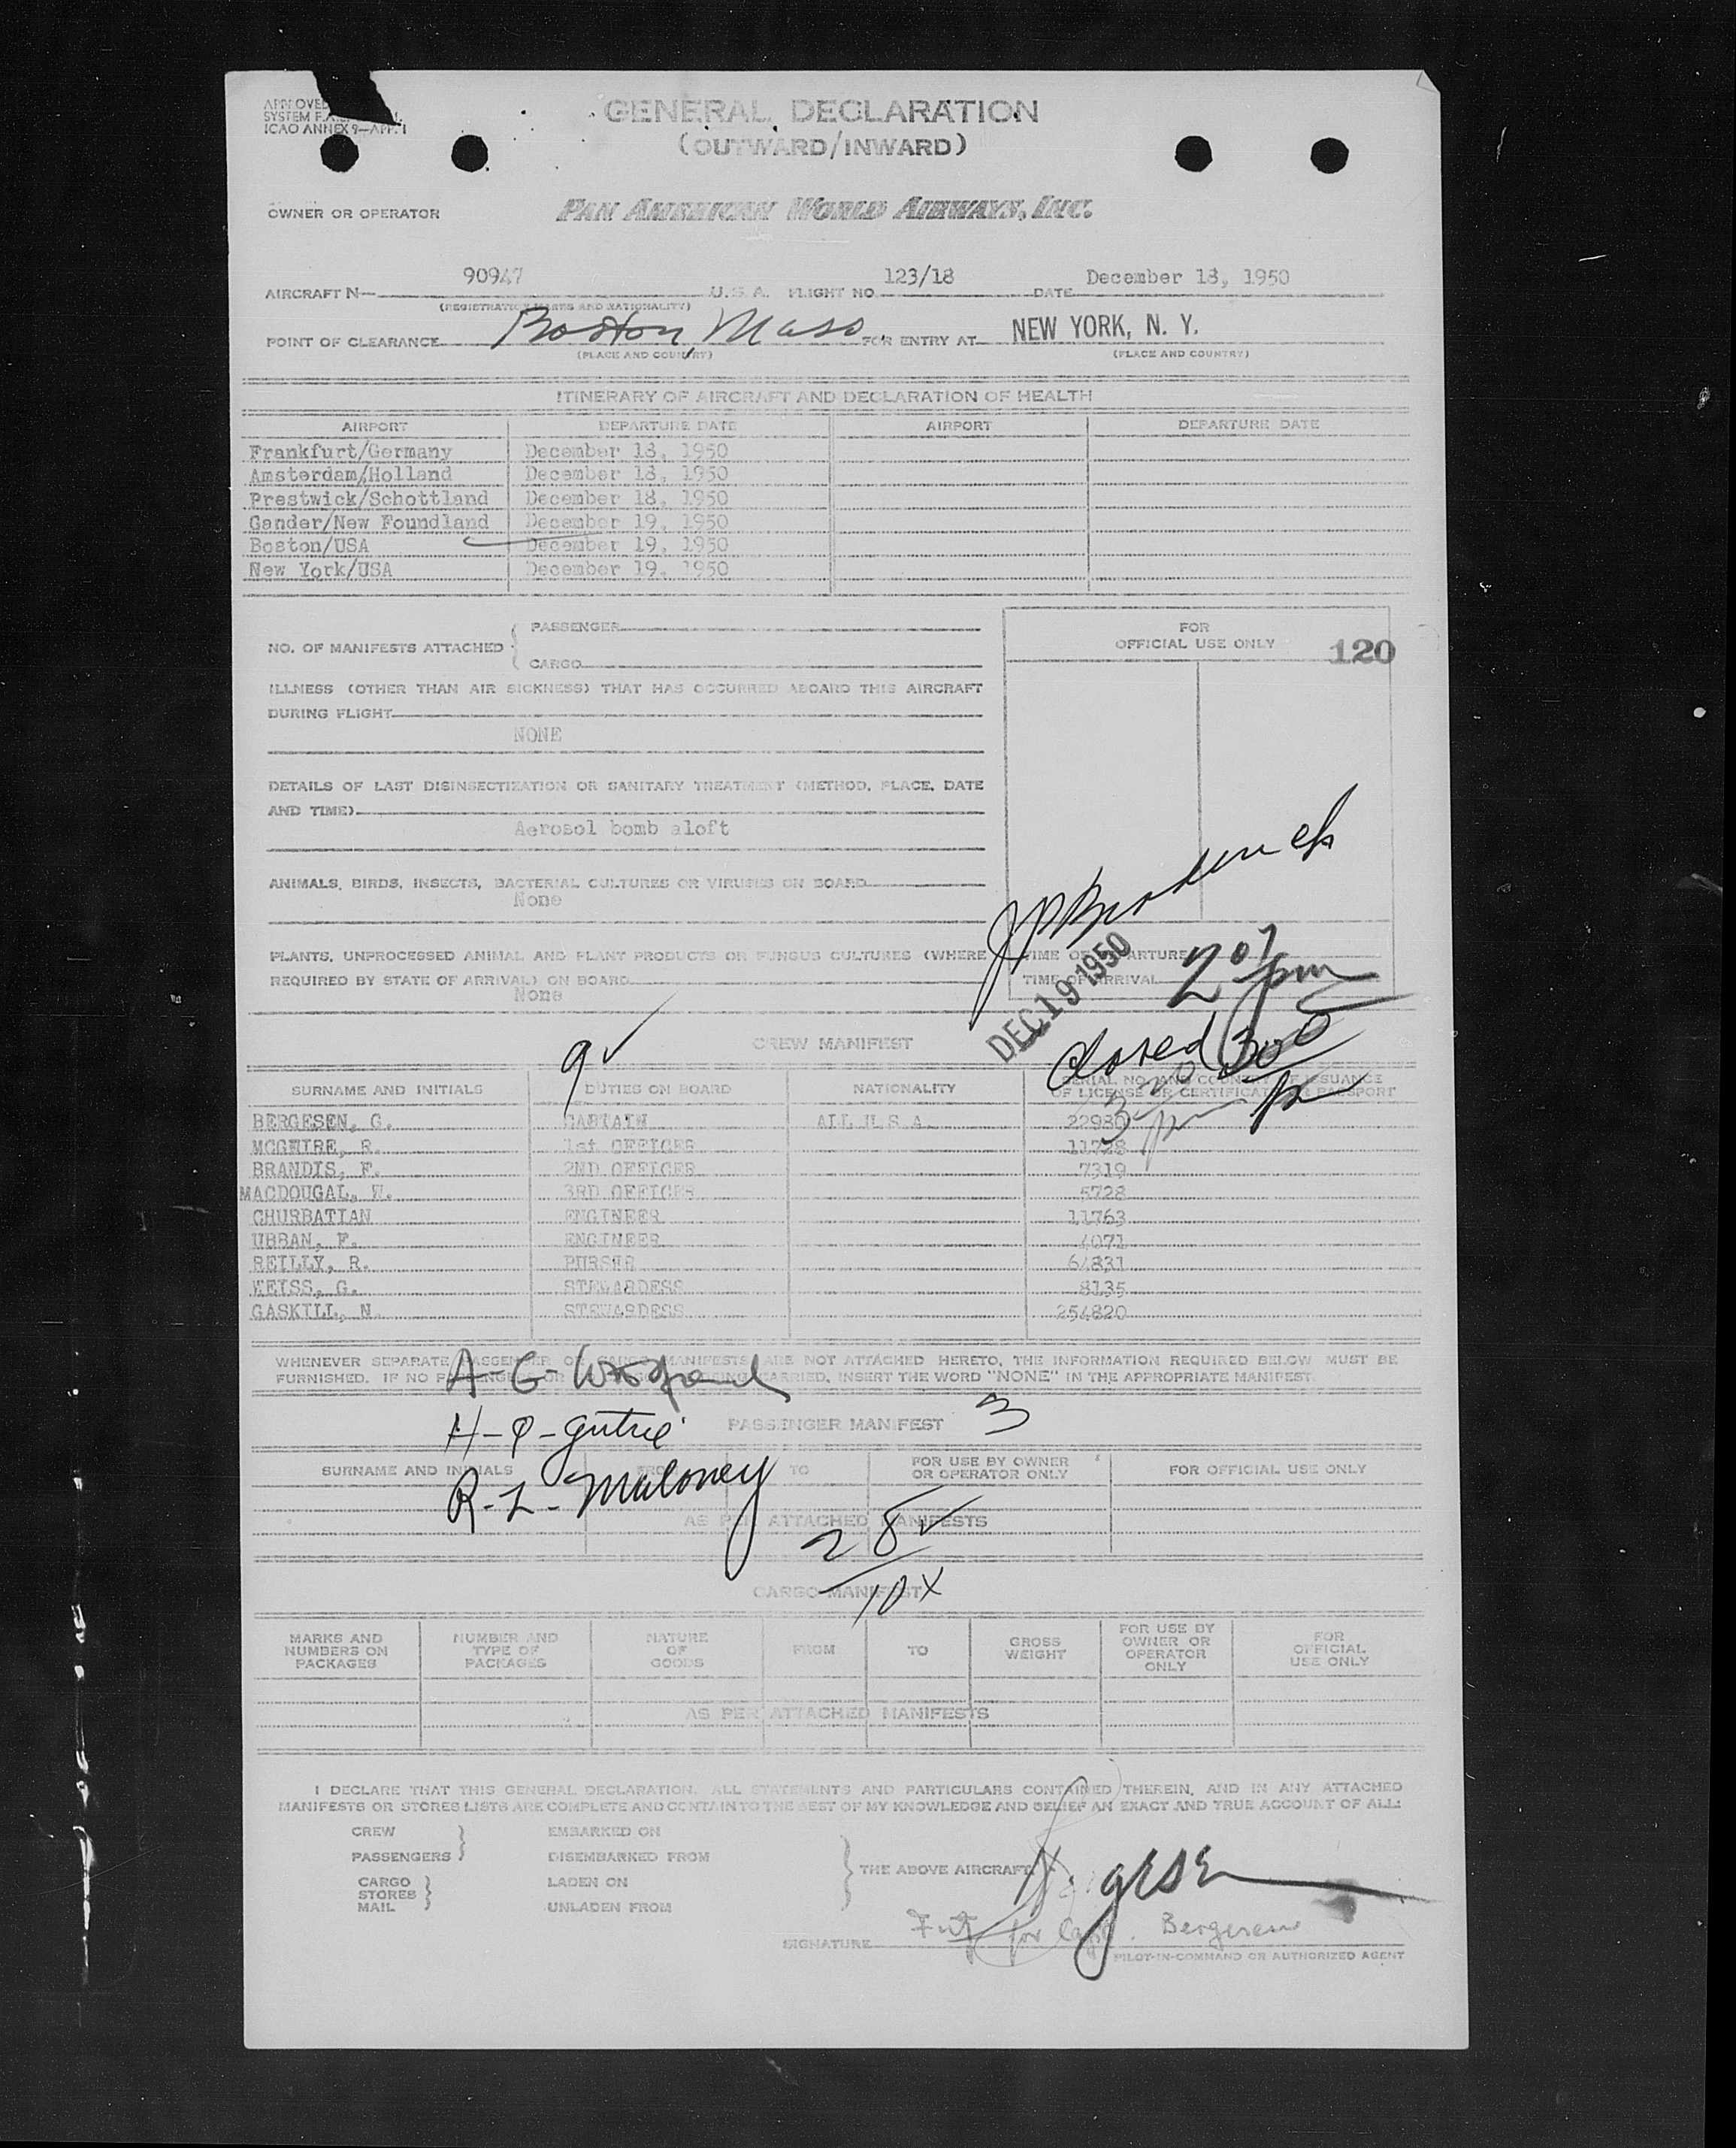 GENERAL DECLARATION
(OUTWARD/INWARD)
APPROVED
SYSTEM
ICAO ANNEX 9—APP. 1
OWNER OR OPERATOR PAN AMERICAN WORLD AIRWAYS, INC.
AIRCRAFT N— 90947 U. S. A. FLIGHT NO. 123/18 DATE December 18, 1950
(REGISTRATION MARKS AND NATIONALITY)
POINT OF CLEARANCE Boston, Mass. FOR ENTRY AT NEW YORK, N. Y.
(PLACE AND COUNTRY) (PLACE AND COUNTRY)
ITINERARY OF AIRCRAFT AND DECLARATION OF HEALTH
AIRPORT DEPARTURE DATE AIRPORT DEPARTURE DATE
Frankfurt/Germany December 18, 1950
Amsterdam/Holland December 18, 1950
Prestwick/Schottland December 18, 1950
Gander/New Foundland December 19, 1950
Boston/USA December 19, 1950
New York/USA December 19, 1950
NO. OF MANIFESTS ATTACHED { PASSENGER
CARGO
FOR
OFFICIAL USE ONLY 120
ILLNESS (OTHER THAN AIR SICKNESS) THAT HAS OCCURRED ABOARD THIS AIRCRAFT
DURING FLIGHT
NONE
DETAILS OF LAST DISINSECTIZATION OR SANITARY TREATMENT (METHOD, PLACE, DATE
AND TIME)
Aerosol bomb aloft
ANIMALS, BIRDS, INSECTS, BACTERIAL CULTURES OR VIRUSES ON BOARD
None
PLANTS, UNPROCESSED ANIMAL AND PLANT PRODUCTS OR FUNGUS CULTURES (WHERE
REQUIRED BY STATE OF ARRIVAL) ON BOARD
None
TIME OF DEPARTURE
TIME OF ARRIVAL 2 07 pm
DEC 19 1950
closed 300
9 ✓
CREW MANIFEST
SURNAME AND INITIALS DUTIES ON BOARD NATIONALITY SERIAL NO. AND COUNTRY OF ISSUANCE
OF LICENSE OR CERTIFICATE OR PASSPORT
BERGESEN, G. CAPTAIN ALL U.S.A. 22980
MCGUIRE, R. 1st OFFICER 11728
BRANDIS, F. 2ND OFFICER 7319
MACDOUGAL, W. 3RD OFFICER 5728
CHURBATIAN ENGINEER 11763
URBAN, F. ENGINEER 4071
REILLY, R. PURSER 64831
WEISS, G. STEWARDESS 8135
GASKILL, N. STEWARDESS 254820
WHENEVER SEPARATE PASSENGER OR CARGO MANIFESTS ARE NOT ATTACHED HERETO, THE INFORMATION REQUIRED BELOW MUST BE
FURNISHED. IF NO PASSENGERS OR CARGO ARE BEING CARRIED, INSERT THE WORD "NONE" IN THE APPROPRIATE MANIFEST.
A-G-
H-P-Gutrie
PASSENGER MANIFEST 3
R-L-Maloney
SURNAME AND INITIALS FROM TO FOR USE BY OWNER
OR OPERATOR ONLY FOR OFFICIAL USE ONLY
AS PER ATTACHED MANIFESTS
28 ✓
10 X
CARGO MANIFEST
MARKS AND
NUMBERS ON
PACKAGES NUMBER AND
TYPE OF
PACKAGES NATURE
OF
GOODS FROM TO GROSS
WEIGHT FOR USE BY
OWNER OR
OPERATOR
ONLY FOR
OFFICIAL
USE ONLY
AS PER ATTACHED MANIFESTS
I DECLARE THAT THIS GENERAL DECLARATION, ALL STATEMENTS AND PARTICULARS CONTAINED THEREIN, AND IN ANY ATTACHED
MANIFESTS OR STORES LISTS ARE COMPLETE AND CONTAIN TO THE BEST OF MY KNOWLEDGE AND BELIEF AN EXACT AND TRUE ACCOUNT OF ALL:
CREW EMBARKED ON
PASSENGERS DISEMBARKED FROM
THE ABOVE AIRCRAFT
CARGO LADEN ON
STORES
MAIL UNLADEN FROM
SIGNATURE for Capt. Bergesen
PILOT-IN-COMMAND OR AUTHORIZED AGENT